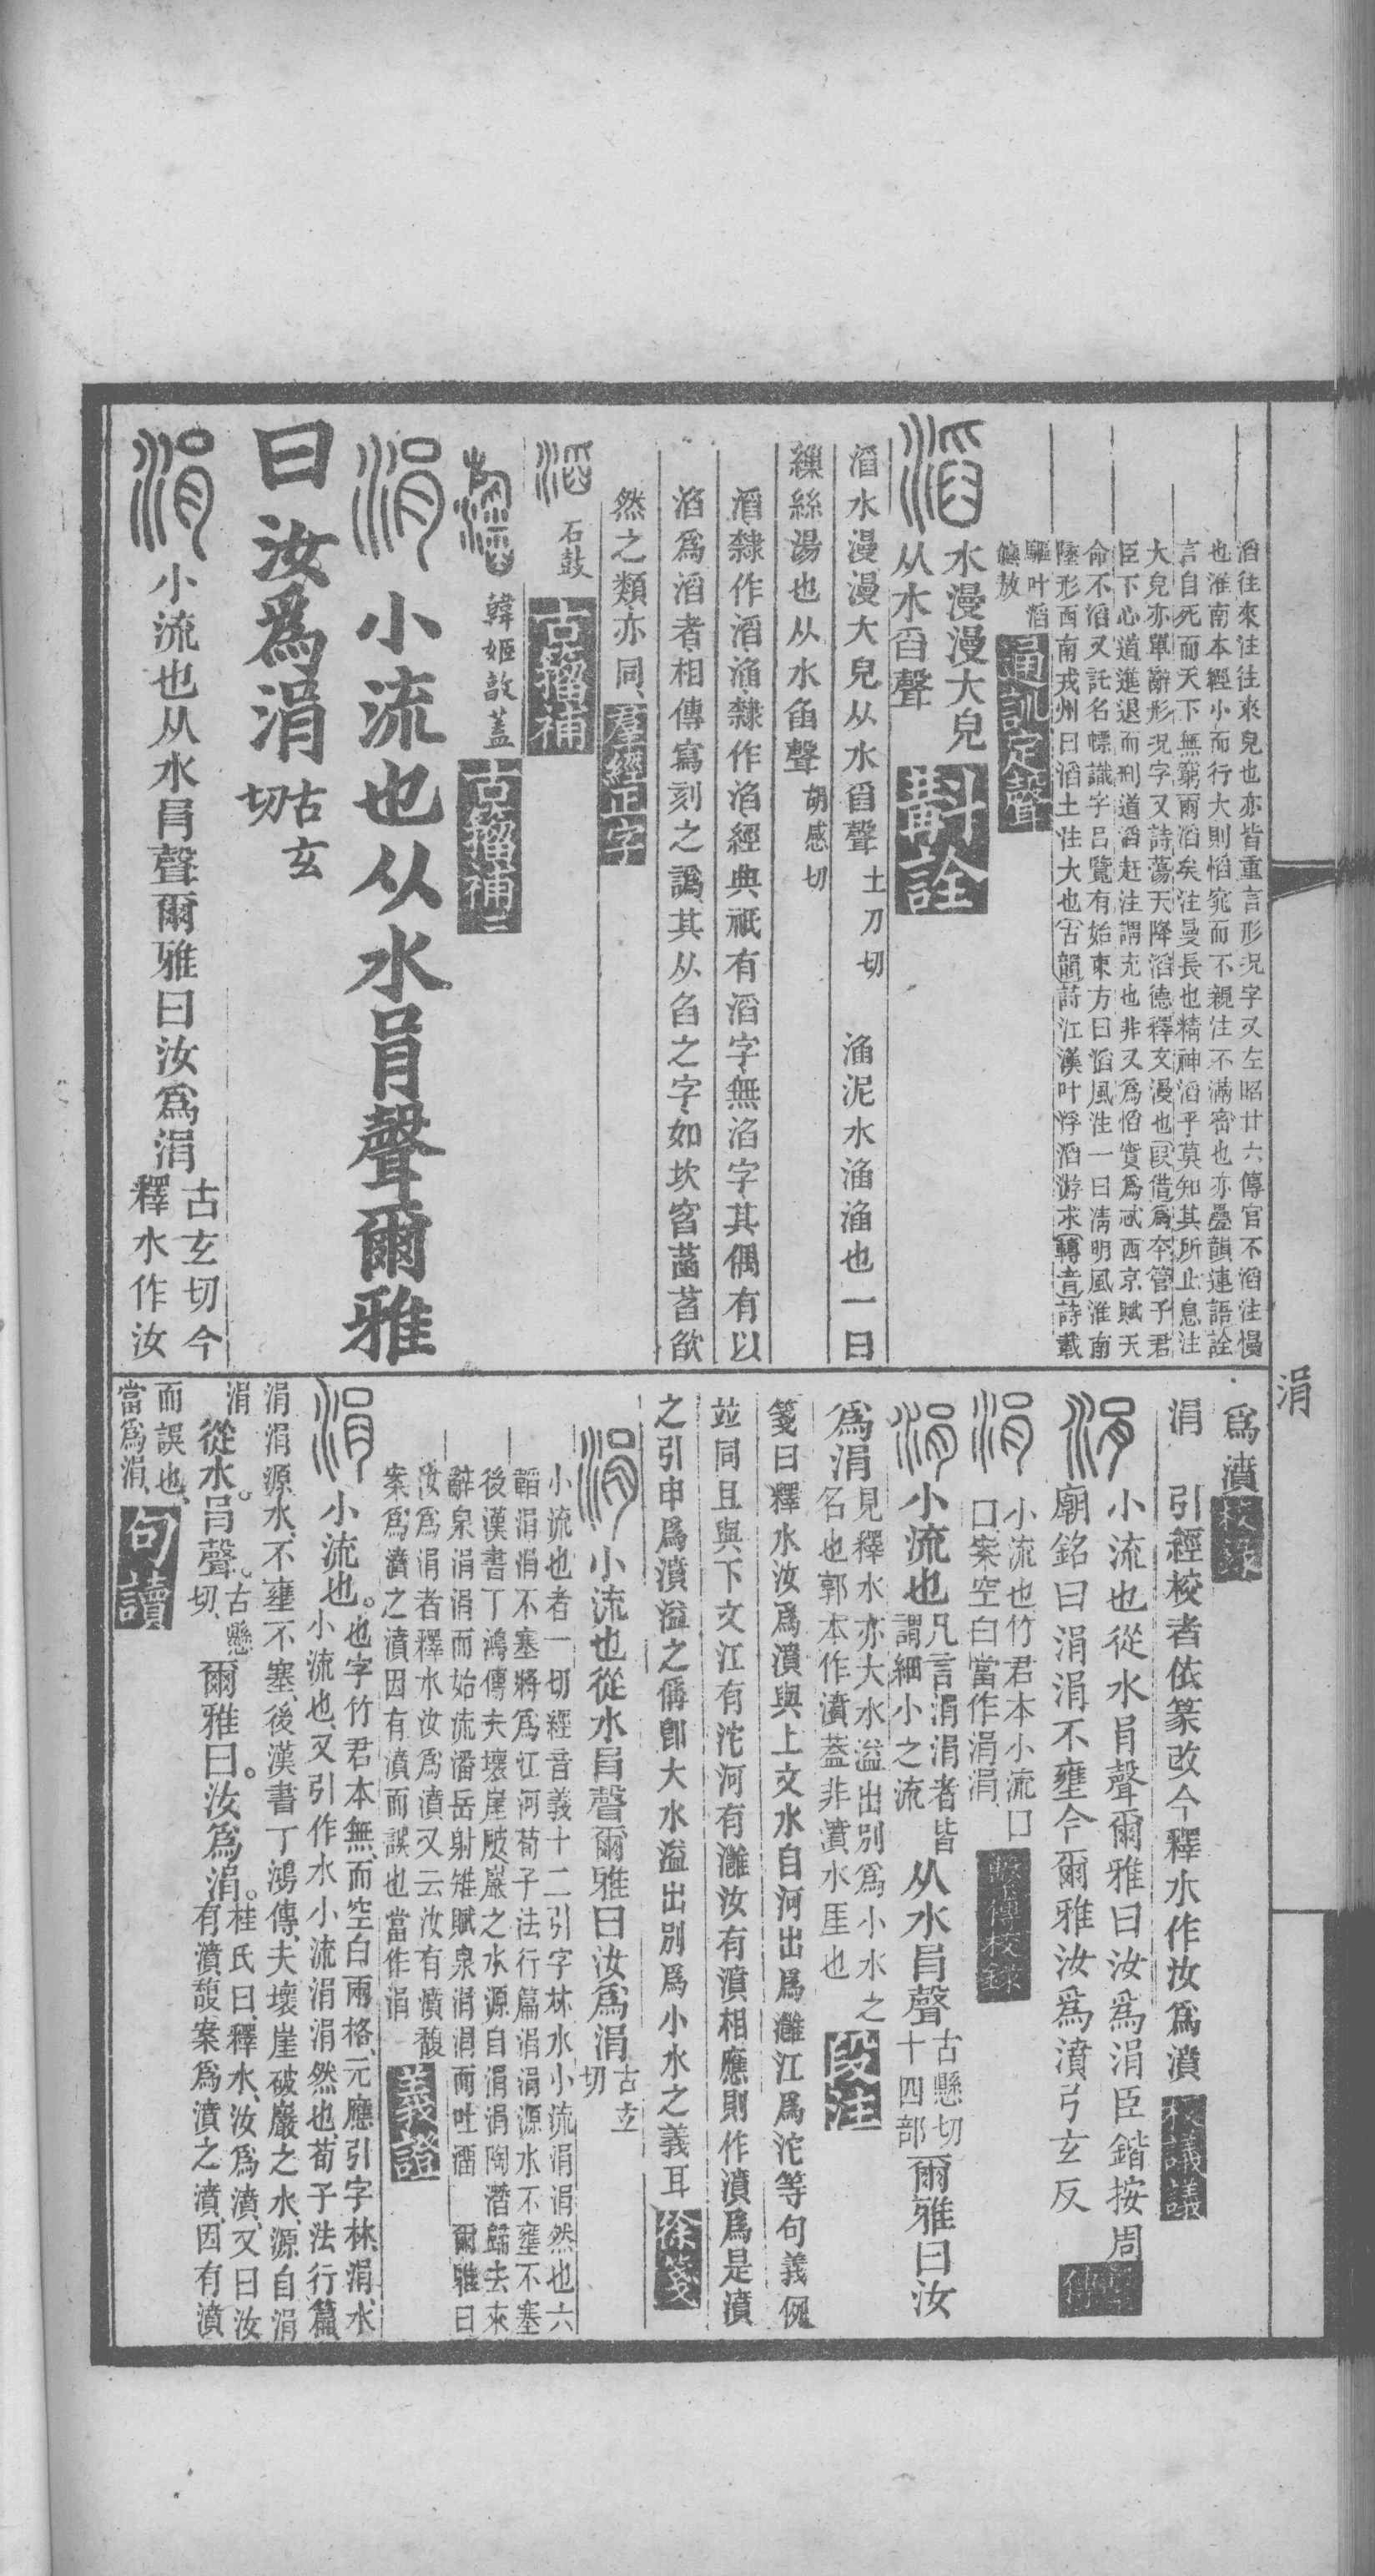 滔往來注往來皃也亦皆重言形況字又左昭廿六傳官不滔注慢
也淮南本經小而行大則慆窕而不親注不滿密也亦疊韻連語詮
言自死而天下無窮爾滔矣注曼長也精神滔乎莫知其所止息注
大皃亦單辭形況字又詩蕩天降滔德釋文漫也叚借爲夲管子君
臣下心道進退而刑道滔赶注謂充也非又爲慆實爲忒西京賦天
命不滔又託名幖識字吕覽有始東方曰滔風注一曰淸明風淮南
墬形西南戎州曰滔土注大也古韻詩江漢叶浮滔游求轉音詩載
驅叶滔
儦敖
通訓定聲
滔
水漫漫大皃
从水舀聲
斠詮
滔水漫漫大皃从水舀聲土刀切
淊泥水淊淊也一曰
繅絲湯也从水臽聲胡感切
滔隸作滔淊隸作淊經典祇有滔字無淊字其偶有以
淊爲滔者相傳寫刻之譌其从臽之字如坎窞菡萏欿
然之類亦同羣經正字
滔石鼓古籀補
韓姬㪤蓋古籀補二
涓小流也从水肙聲爾雅
曰汝爲涓古玄切
涓小流也从水肙聲爾雅曰汝爲涓古玄切今
釋水作汝
涓
爲濆校錄
涓引經校者依篆改今釋水作汝爲濆校議議
涓小流也從水肙聲爾雅曰汝爲涓臣鍇按周
廟銘曰涓涓不壅今爾雅汝爲濆弓玄反傳
涓小流也竹君本小流口
口案空白當作涓涓繫傳校錄
涓小流也凡言涓涓者皆
謂細小之流从水肙聲古懸切
十四部爾雅曰汝
爲涓見釋水亦大水溢出別爲小水之
名也郭本作濆蓋非濆水厓也段注
箋曰釋水汝爲濆與上文水自河出爲灉江爲沱等句義例
竝同且與下文江有沱河有灉汝有濆相應則作濆爲是濆
之引申爲濆溢之偁卽大水溢出別爲小水之義耳徐箋
涓小流也從水肙聲爾雅曰汝爲涓古玄
切
小流也者一切經音義十二引字林水小流涓涓然也六
韜涓涓不塞將爲江河荀子法行篇涓涓源水不壅不塞
後漢書丁鴻傳夫壞崖破巖之水源自涓涓陶潛歸去來
辭泉涓涓而始流潘岳射雉賦泉涓涓而吐溜 爾雅曰
汝爲涓者釋水汝爲濆又云汝有濆馥
案爲濆之濆因有濆而誤也當作涓義證
涓小流也。也字竹君本無、而空白兩格、元應引字林、涓、水
小流也、又引作水小流涓涓然也、荀子法行篇、
涓涓源水、不壅不塞、後漢書丁鴻傳、夫壞崖破巖之水、源自涓
涓從水。肙聲。古懸
切、爾雅曰。汝爲涓。桂氏曰、釋水、汝爲濆、又曰汝
有濆馥案爲濆之濆、因有濆
而誤也、
當爲涓、句讀